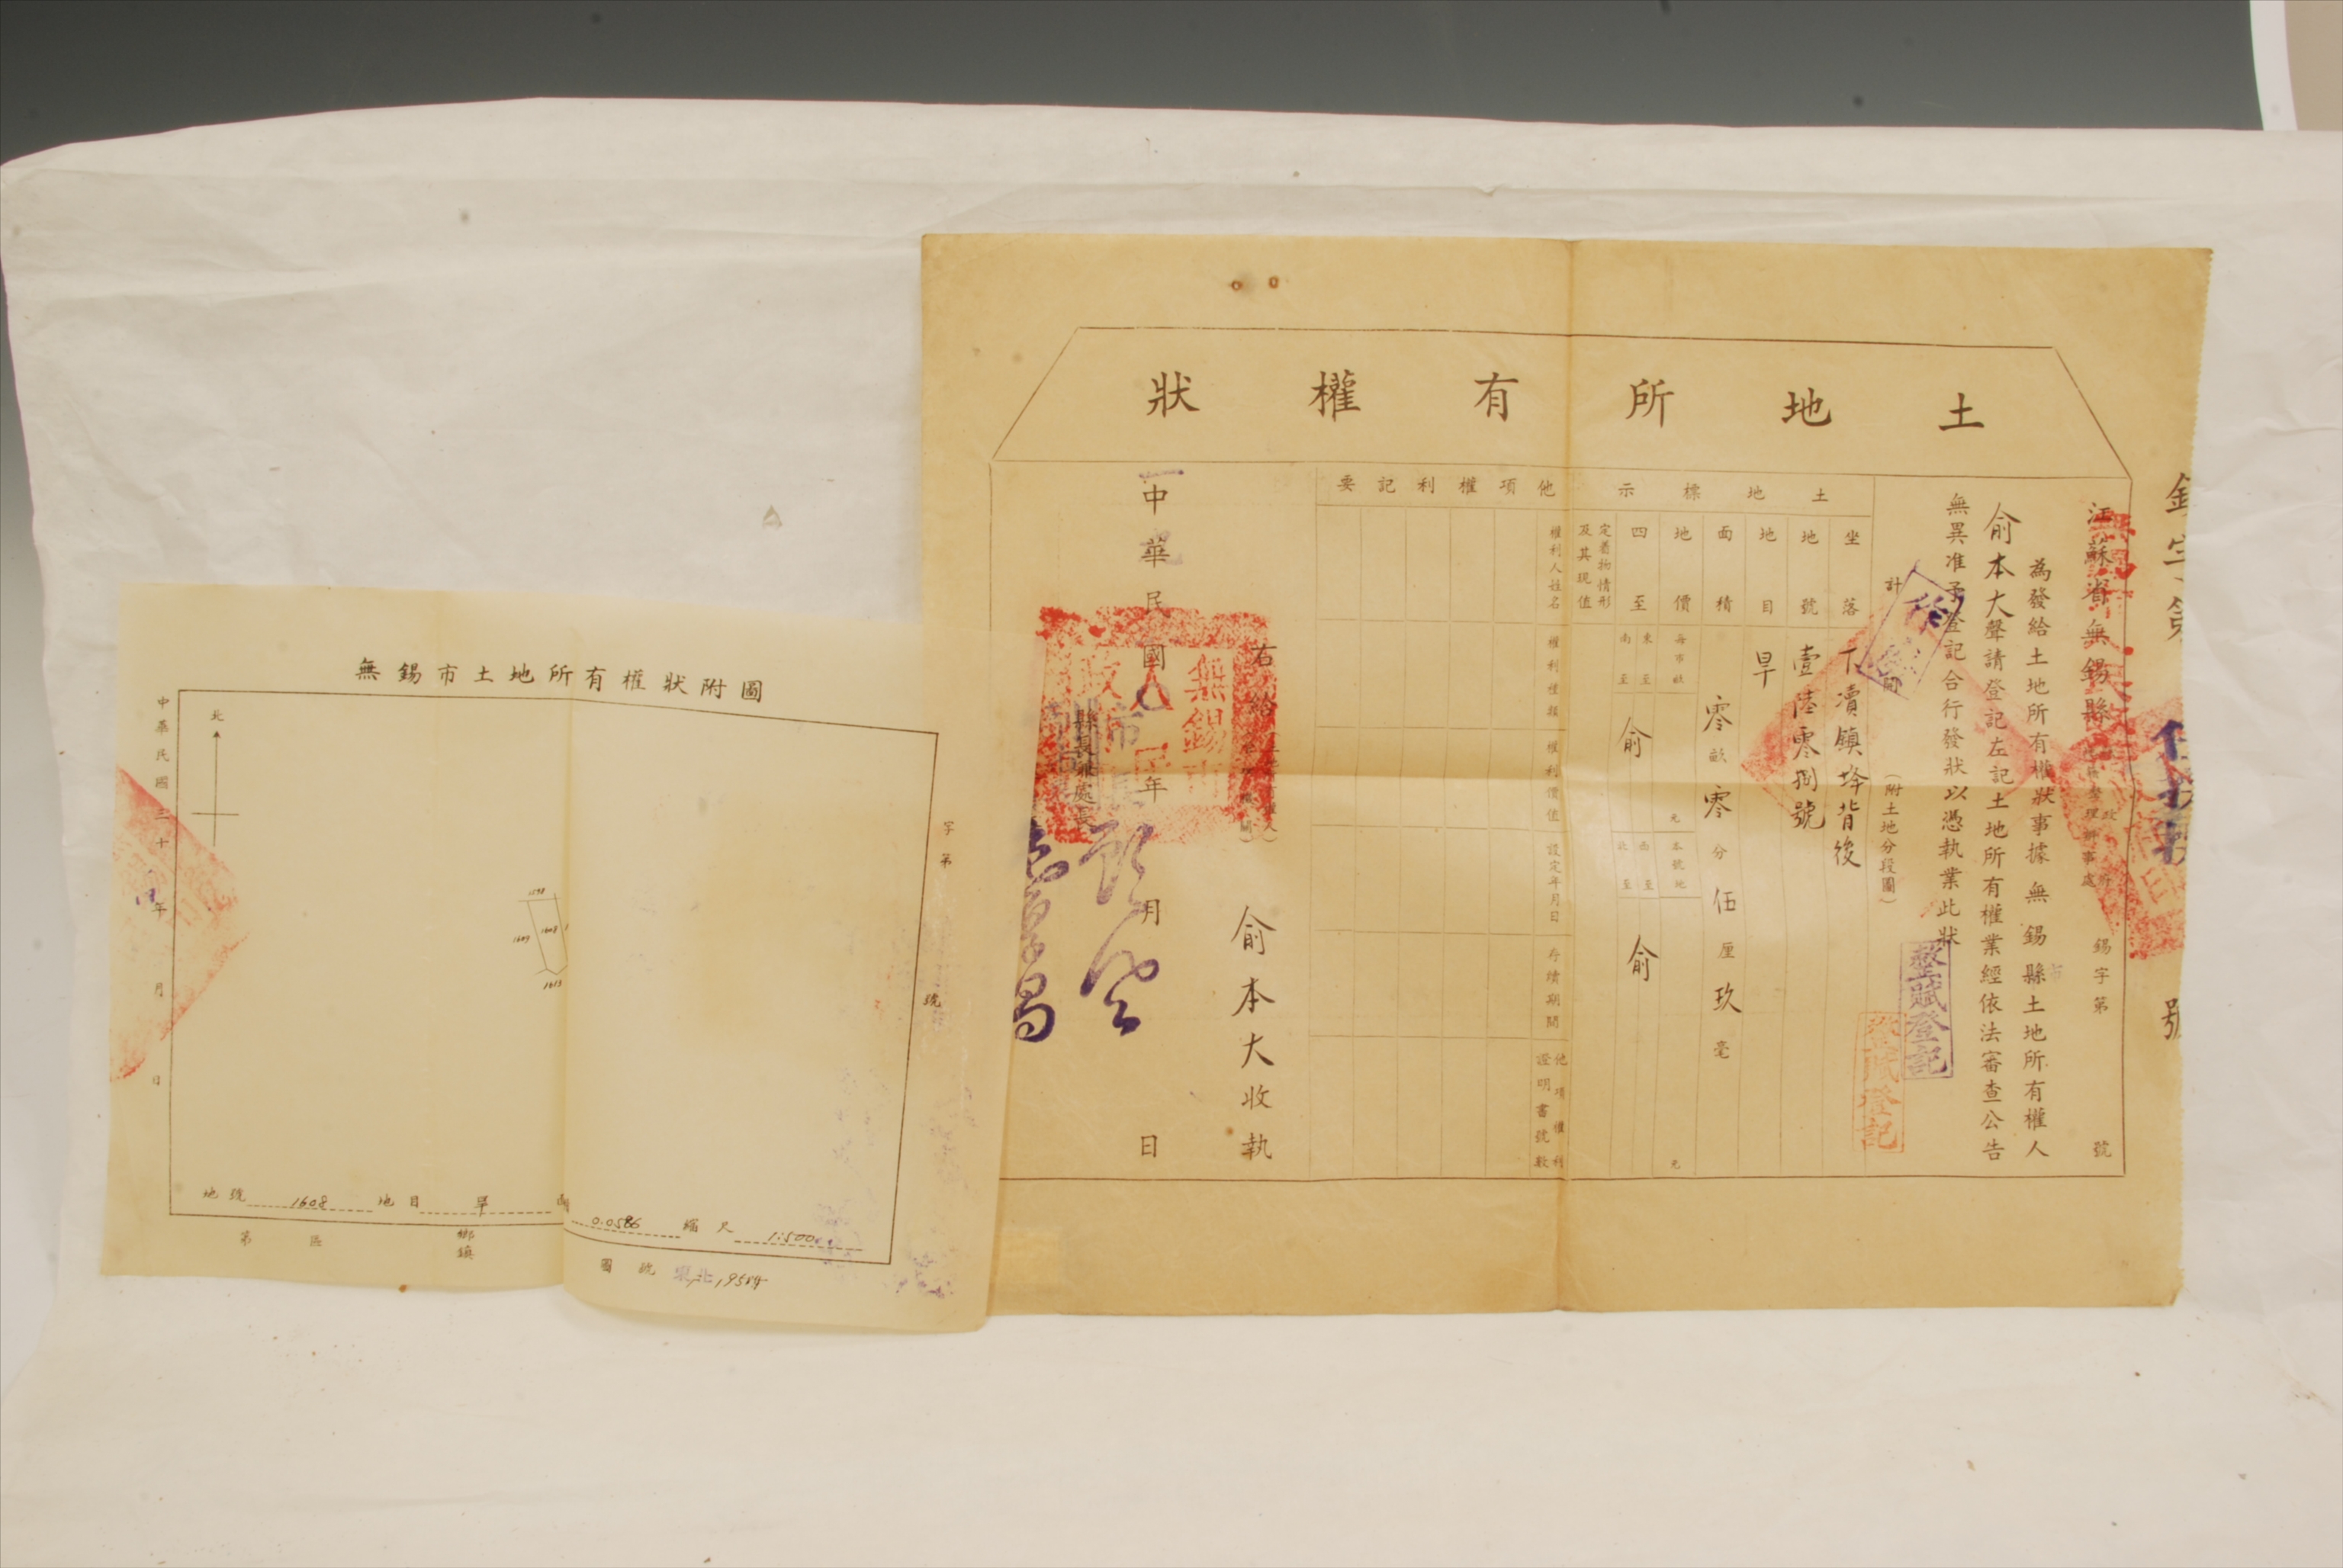 土地所有權狀
錫字第
號
江蘇省無錫縣
錫字第 號
為發給土地所有權狀事據無錫縣土地所有權人
俞本大聲請登記左記土地所有權業經依法審查公告
無異准予登記合行發狀以憑執業此狀
計
(附土地分段圖)
整賦登記
土地標示
坐落 下瀆鎮
背後
地號 壹陸零捌號
地目 旱
面積 零畝零分伍厘玖毫
地價 每市畝 元 本號地 元
四至 東至 南至 俞 西至 北至 俞
定着物情形及其現值
他項權利記要
權利人姓名
權利種類
權利價值
設定年月日
存續期間
他項權利證明書號數
右給
俞本大收執
中華民國 年 月 日
縣長兼處長
無錫市
無錫市土地所有權狀附圖
中華民國三十 年 月 日
北
字第 號
1598
1609
1608
1613
地號 1608 地目 旱
0.0586 縮尺 1:500
第 區 鄉鎮
圖號